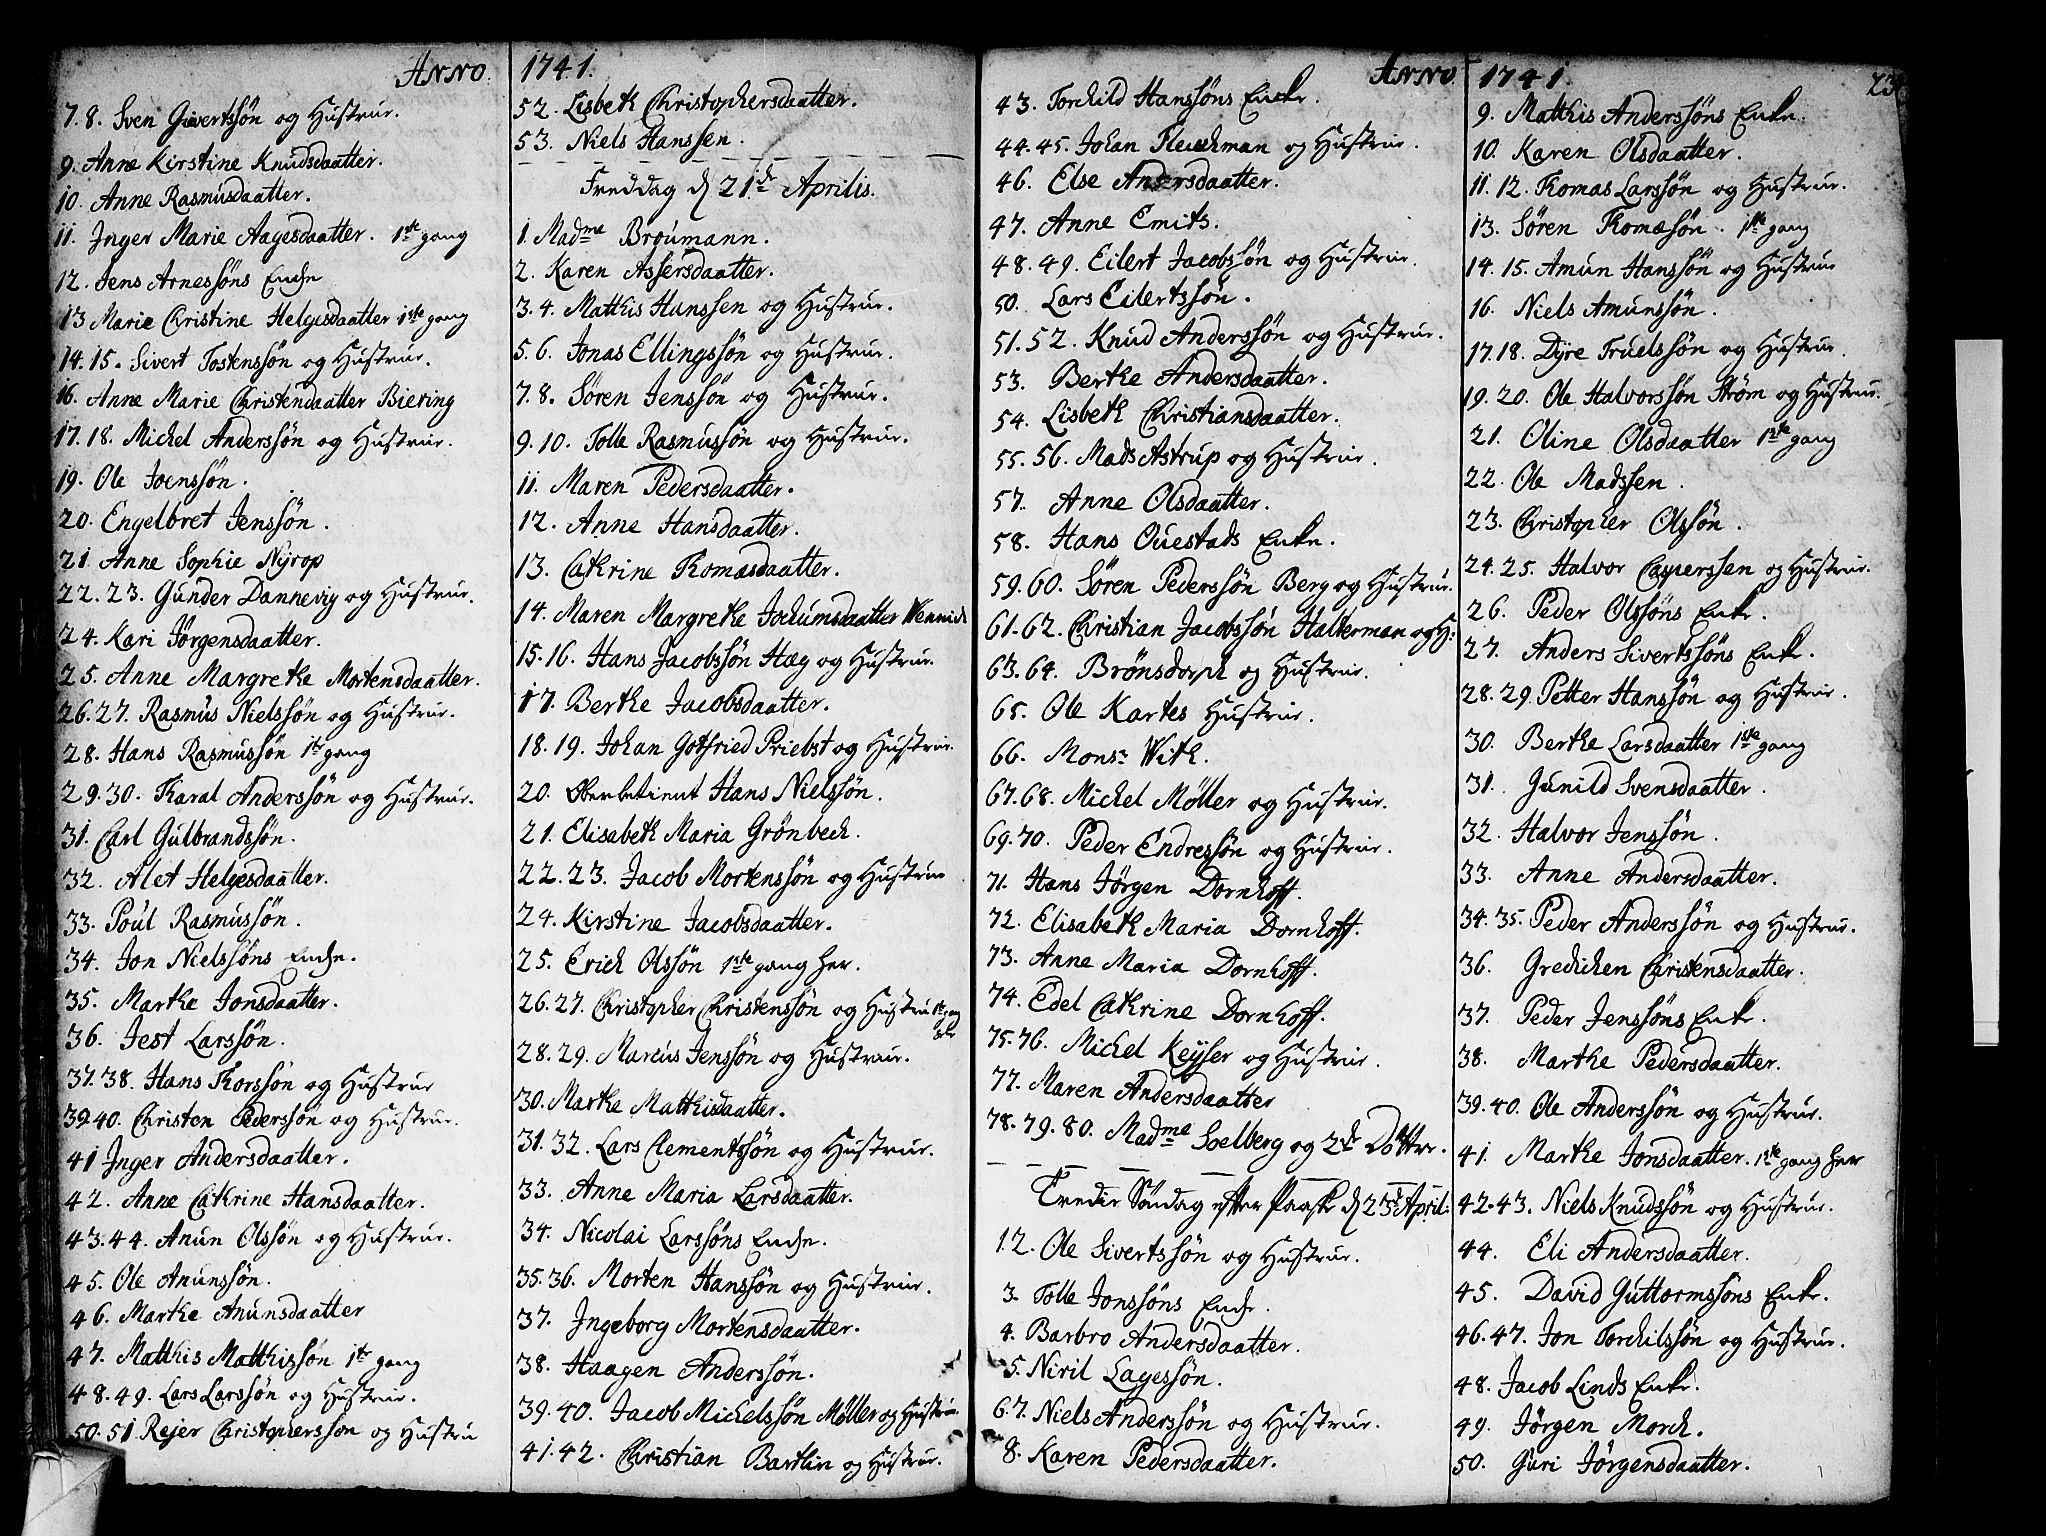 Anno
7. 8. Sven Givertsön og Hustrue.
9. Anne Kirstine Knudsdaatter.
10. Anne Rasmusdaatter.
11. Inger Marie Aagesdaatter. 1ste gang
12. Jens Arnessöns Encke
13 Marie Christine Helgesdaatter 1ste gang
14. 15. Sivert Tostenssön og Hustrue.
16. Anne Marie Christendaatter Biering
17. 18. Michel Anderssön og Hustrue.
19. Ole Joenssön.
20. Engelbret Jenssön.
21 Anne Sophie Nÿrop
22. 23. Gunder Dannevig og Hustrue.
24. Kari Jörgensdaatter.
25. Anne Margrethe Mortensdaatter.
26. 27. Rasmus Nielssön og Hustrue.
28. Hans Rasmussön 1te gang
29. 30. Haral Anderssön og Hustrue.
31. Carl Gulbrandssön.
32. Alet Helgesdaatter.
33. Poul Rasmussön.
34. Jon Nielssöns Encke.
35. Marthe Jonsdaatter.
36. Jest Larssön.
37. 38. Hans Thorssön og Hustrue
39 40. Christen Pederssön og Hustrue.
41 Inger Andersdaatter.
42. Anne Cathrine Hansdaatter.
43. 44. Anun Olssön og Hustrue.
45. Ole Anunssön.
46. Marthe Anunsdaatter
47. Matthis Matthissön 1te gang
48. 49. Lars Larssön og Hustrue.
50. 51. Rejer Christopherssön og Hustru
1741.
52. Lisbeth Christophersdaatter.
53. Niels Hanssen.
Freddag d 21de Aprilis.
1. Madme Broumann.
2. Karen Assersdaatter.
3. 4. Matthis Hanssen og Hustrue.
5. 6. Jonas Ellingssön og Hustrue.
7. 8. Sören Jenssön og Hustrue.
9. 10. Tolle Rasmussön og Hustrue.
11. Maren Pedersdaatter.
12. Anne Hansdaatter.
13. Cathrine Thomasdaatter.
14. Maren Margrethe Jochumsdaatter
15. 16. Hans Jacobssön Hæg og Hustrue.
17. Berthe Jacobsdaatter.
18. 19. Johan Gotfried Priebst og Hustrue.
20. Oberbetient Hans Nielssön.
21. Elisabeth Maria Grönbech.
22. 23. Jacob Mortenssön og Hustrue
24. Kirstine Jacobsdaatter.
25. Erich Olssön 1ste gang her.
26. 27. Christopher Christenssön og Hustru 1te gang
her
28. 29. Marcus Jenssön og Hustrue.
30. Marthe Matthisdaatter.
31. 32. Lars Clementssön og Hustrue.
33. Anne Maria Larsdaatter.
34. Nicolai Larssöns Encke.
35. 36. Morten Hanssön og Hustrue.
37. Ingeborg Mortensdaatter.
38. Haagen Anderssön.
39. 40. Jacob Michelssön Möller og Hustrue
41. 42. Christian Bartlin og Hustrue.
Anno
43. Torchild Hanssöns Encke.
44. 45. Johan Fleuchman og Hustrue.
46. Else Andersdaatter.
47. Anne Emits.
48. 49. Eilert Jacobssön og Hustrue.
50. Lars Eilertssön.
51. 52. Knud Anderssön og Hustrue.
53. Berthe Andersdaatter.
54. Lisbeth Christiansdaatter.
55. 56. Mads Astrup og Hustrue.
57. Anne Olsdaatter.
58. Hans Ouestads Enke.
59. 60. Sören Pederssön Berg og Hustrue.
61. 62. Christian Jacobssön Halterman og H:
63. 64. Brönsdorph og Hustrue.
65. Ole Kartes Hustrue.
66. Monsr With.
67. 68. Michel Möller og Hustrue.
69. 70. Peder Endressön og Hustrue.
71. Hans Jörgen Dornhoff.
72. Elisabeth Maria Dornhoff.
73. Anne Maria Dornhoff.
74. Edel Cathrine Dornhoff.
75. 76. Michel Keyser og Hustrue.
77. Maren Andersdaatter
78. 79. 80. Madme Soelberg og 2de Döttre.
Tredie Söndag efter Paaske d 23de April:
1. 2. Ole Sivertssön og Hustrue.
3. Tolle Jonssöns Encke.
4. Barbro Andersdaatter.
5. Niril Lagessön.
6. 7. Niels Anderssön og Hustrue.
8. Karen Pedersdaatter.
1741.
9. Matthis Anderssöns Enke.
10. Karen Olsdaatter.
11. 12. Thomas Larssön og Hustrue.
13. Sören Thomæsön. 1ste gang
14. 15. Amun Hanssön og Hustrue
16. Niels Amunssön.
17. 18. Dÿre Truelssön og Hustrue.
19. 20. Ole Halvorssön Ström og Hustrue.
21. Oline Olsdaatter 1ste gang
22. Ole Madssen.
23. Christopher Olssön.
24. 25. Halvor Casperssen og Hustrue.
26. Peder Olssöns Enke.
27. Anders Sivertssöns Enke.
28. 29. Petter Hanssön og Hustrue.
30. Berthe Larsdaatter 1ste gang
31. Gunild Svensdaatter.
32. Halvor Jenssön.
33. Anne Andersdaatter.
34. 35. Peder Anderssön og Hustrue.
36. Gredichen Christensdaatter.
37. Peder Jenssöns Enke.
38. Marthe Pedersdaatter.
39. 40. Ole Anderssön og Hustrue.
41. Marthe Jonsdaatter. 1ste gang her
42. 43. Niels Knudssön og Hustrue.
44. Eli Andersdaatter.
45. David Guttormssöns Enke.
46. 47. Jon Torchilssön og Hustrue.
48. Jacob Linds Enke.
49. Jörgen Morch.
50. Guri Jörgensdaatter.